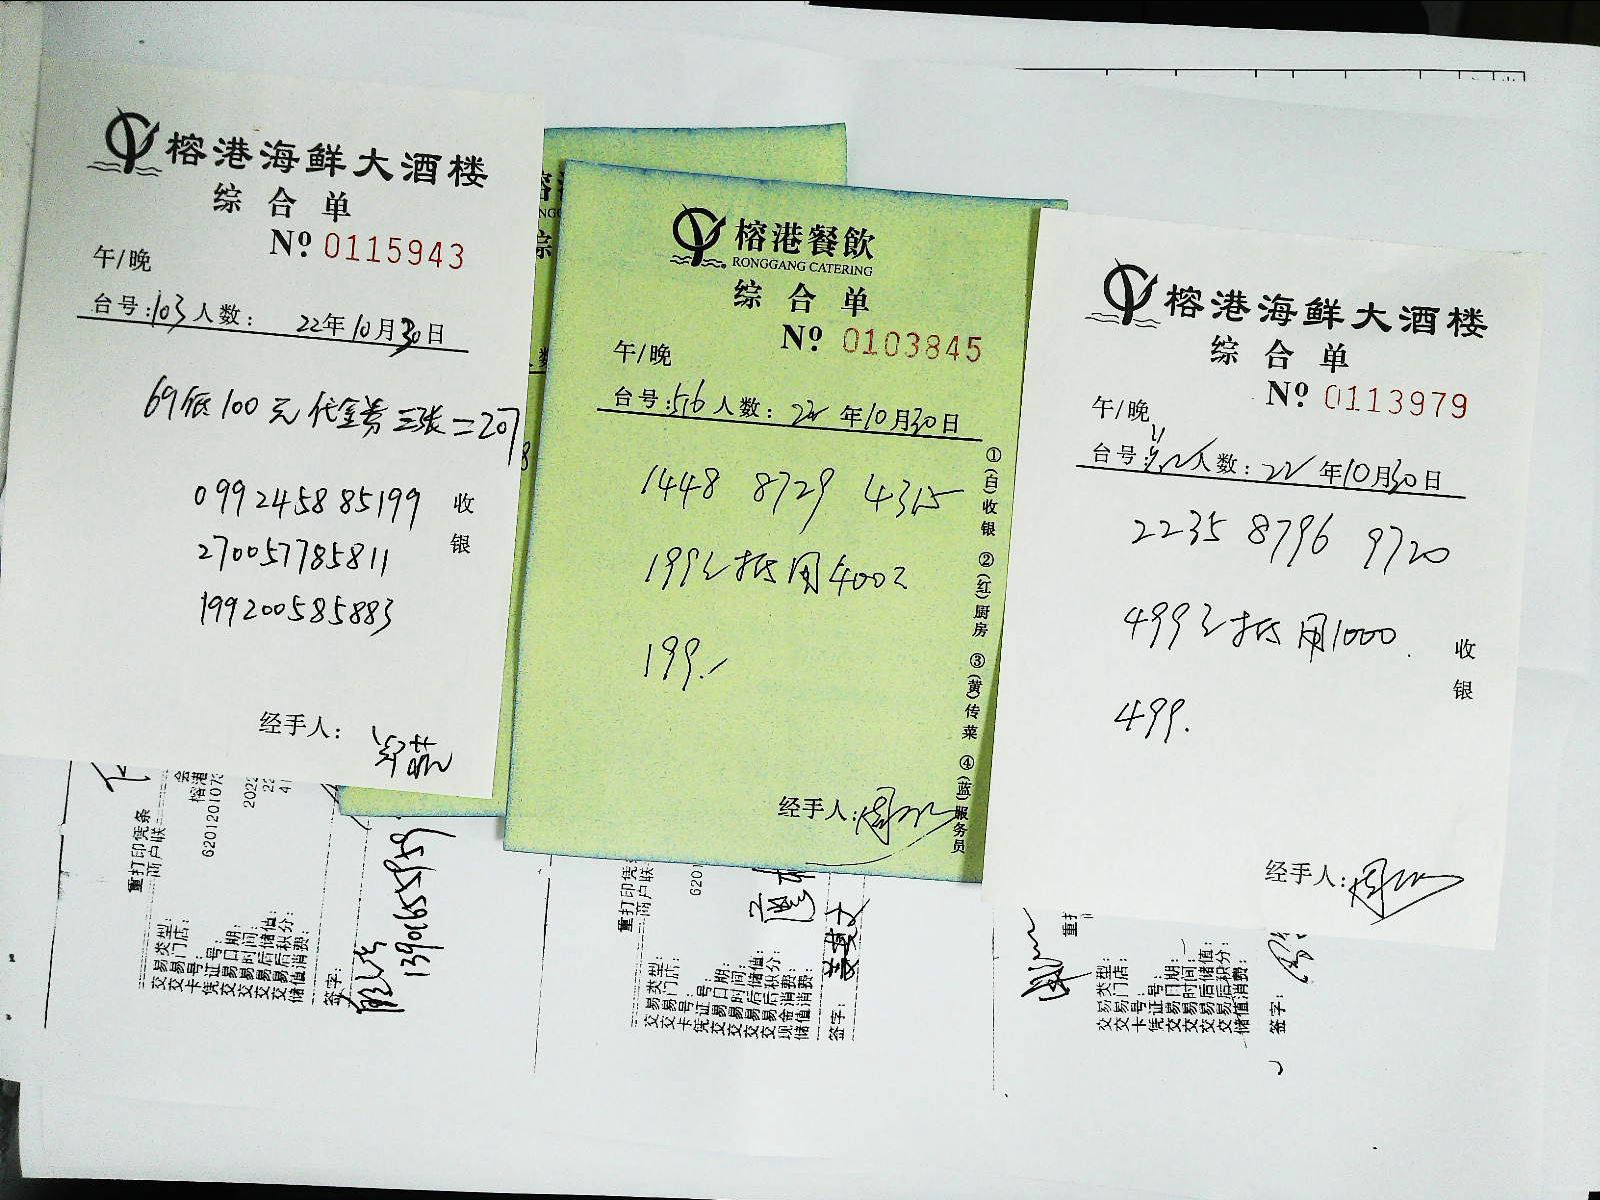 榕港海鲜大酒楼
综合单
Nº 0115943
午/晚
台号:103 人数: 22年10月30日
69抵100元代金券三张=207
099245885199 收
270057785811 银
199200585883
经手人:
榕港餐飲
RONGGANG CATERING
综合单
Nº 0103845
午/晚
台号:516 人数: 22年10月30日
1448 8729 4315
199元抵用400元
199.
①(白)收银 ②(红)厨房 ③(黄)传菜 ④(蓝)服务员
经手人:
榕港海鲜大酒楼
综合单
Nº 0113979
午/晚
台号: 人数: 22年10月30日
2235 8796 9720
499元抵用1000.
收
银
499.
经手人:
重打印凭条
商户联
交易类型:
交易门店: 榕港
卡号: 6201201073
凭证号:
交易日期: 2022
交易时间:
交易后储值:
交易后积分:
储值消费:
签字:
13901655959
重打印凭
商户联
交易类型:
交易门店:
卡号: 620
凭证号:
交易日期:
交易时间:
交易后储值:
交易后积分:
现金消费:
储值消费:
签字:
重打
交易类型:
交易门店:
卡号:
凭证号:
交易日期:
交易时间:
交易后储值:
交易后积分:
储值消费:
签字: